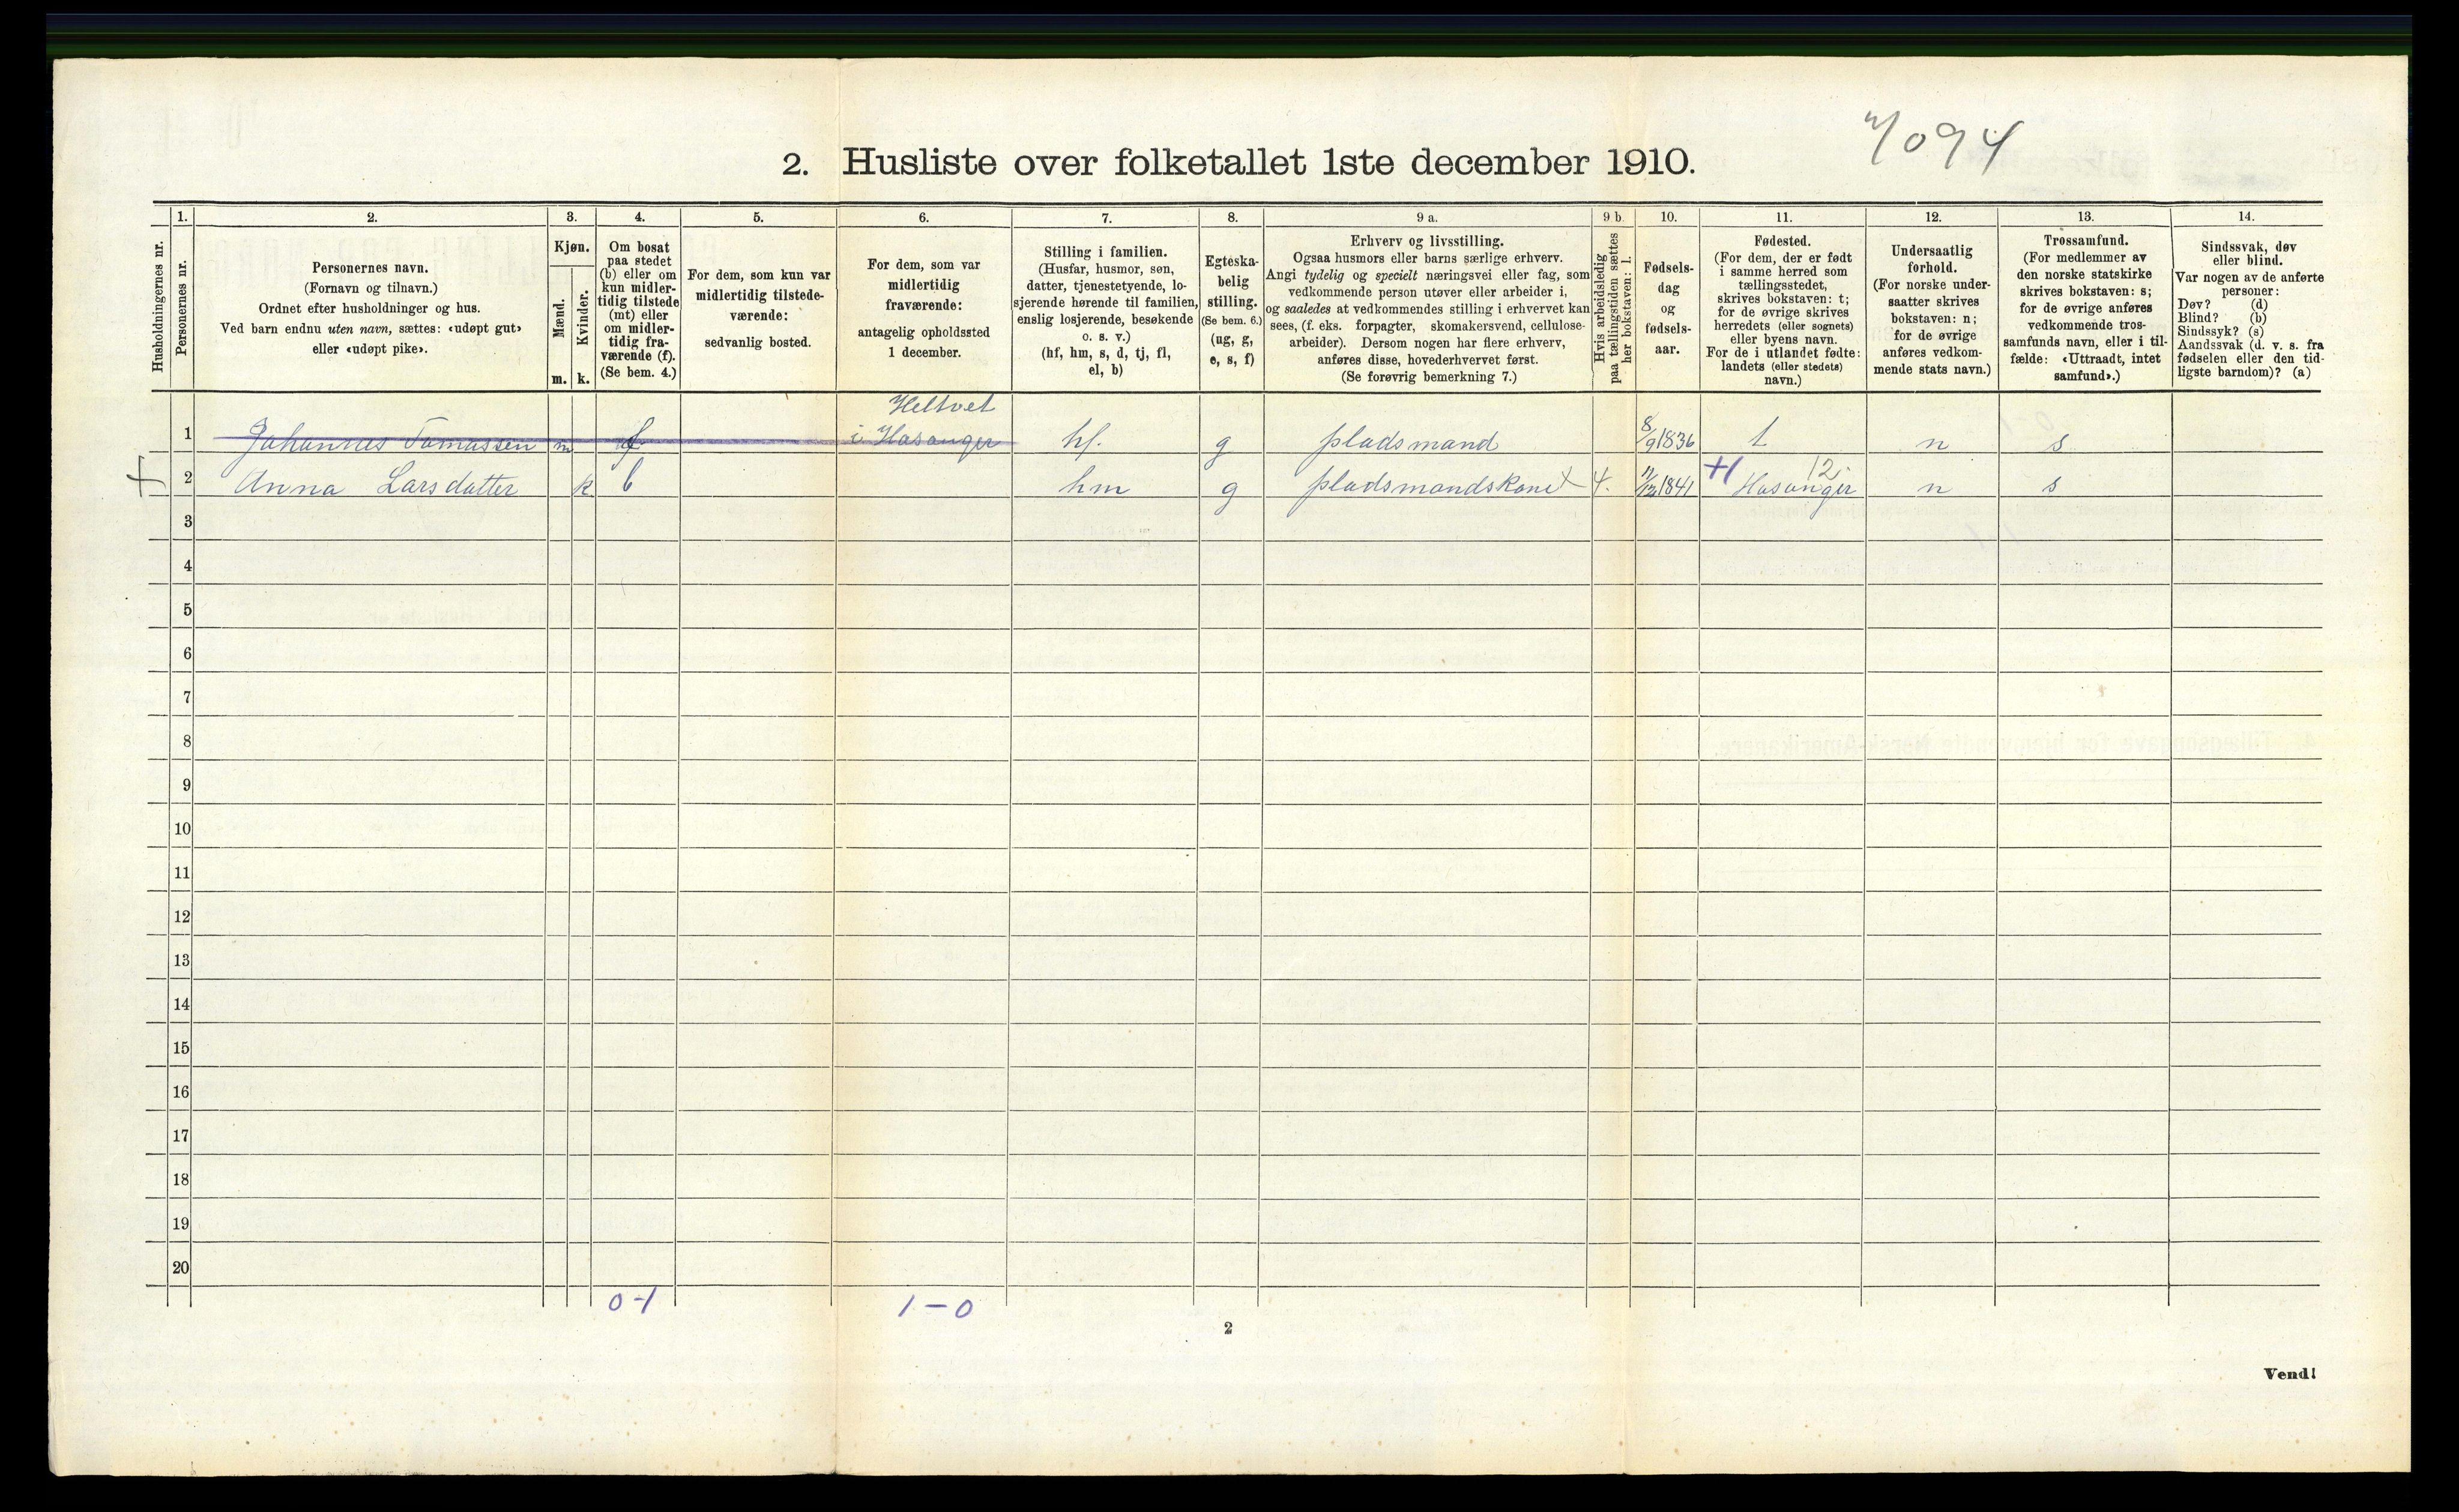 7094
2. Husliste over folketallet 1ste december 1910.
Husholdningernes nr.
1.
Personernes nr.
2.
Personernes navn.
(Fornavn og tilnavn.)
Ordnet efter husholdninger og hus.
Ved barn endnu uten navn, sættes: «udøpt gut»
eller «udøpt pike».
3.
Kjøn.
Mænd.
Kvinder.
m. k.
4.
Om bosat
paa stedet
(b) eller om
kun midler-
tidig tilstede
(mt) eller
om midler-
tidig fra-
værende (f).
(Se bem. 4.)
5.
For dem, som kun var
midlertidig tilstede-
værende:
sedvanlig bosted.
6.
For dem, som var
midlertidig
fraværende:
antagelig opholdssted
1 december.
7.
Stilling i familien.
(Husfar, husmor, søn,
datter, tjenestetyende, lo-
sjerende hørende til familien,
enslig losjerende, besøkende
o. s. v.)
(hf, hm, s, d, tj, fl,
el, b)
8.
Egteska-
belig
stilling.
(Se bem. 6.)
(ug, g,
e, s, f)
9 a.
Erhverv og livsstilling.
Ogsaa husmors eller barns særlige erhverv.
Angi tydelig og specielt næringsvei eller fag, som
vedkommende person utøver eller arbeider i,
og saaledes at vedkommendes stilling i erhvervet kan
sees, (f. eks. forpagter, skomakersvend, cellulose-
arbeider). Dersom nogen har flere erhverv,
anføres disse, hovederhvervet først.
(Se forøvrig bemerkning 7.)
9 b.
Hvis arbeidsledig
paa tællingstiden sættes
her bokstaven: l.
10.
Fødsels-
dag
og
fødsels-
aar.
11.
Fødested.
(For dem, der er født
i samme herred som
tællingsstedet,
skrives bokstaven: t;
for de øvrige skrives
herredets (eller sognets)
eller byens navn.
For de i utlandet fødte:
landets (eller stedets)
navn.)
12.
Undersaatlig
forhold.
(For norske under-
saatter skrives
bokstaven: n;
for de øvrige
anføres vedkom-
mende stats navn.)
13.
Trossamfund.
(For medlemmer av
den norske statskirke
skrives bokstaven: s;
for de øvrige anføres
vedkommende tros-
samfunds navn, eller i til-
fælde: «Uttraadt, intet
samfund».)
14.
Sindssvak, døv
eller blind.
Var nogen av de anførte
personer:
Døv? (d)
Blind? (b)
Sindssyk? (s)
Aandssvak (d. v. s. fra
fødselen eller den tid-
ligste barndom)? (a)
Heltvet
1 Johannes Tomassen m f i Hosanger hf. g pladsmand 8/9 1836 t n s
2 Anna Larsdatter k b hm g pladsmandskone 4. 11/12 1841 Hosanger n s
+1 12
3
4
5
6
7
8
9
10
11
12
13
14
15
16
17
18
19
20
0-1 1-0
2
Vend!